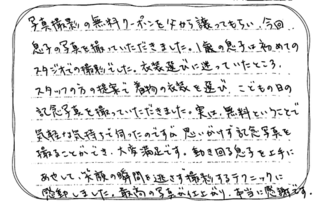 写真撮影の無料クーポンを父から譲ってもらい、今回
息子の写真を撮っていただきました。1歳の息子は初めての
スタジオでの撮影でした。衣装選びに迷っていたところ、
スタッフの方の提案で着物の衣装を選び、こどもの日の
記念写真を撮っていただきました。実は、無料ということで
気軽な気持ちで伺ったのですが、思いがけず記念写真を
撮ることができ、大変満足です。動き回る息子を上手に
あやして、笑顔の瞬間を逃さず撮影するテクニックに
感動しました。最高の写真に仕上がり、本当に感謝です。